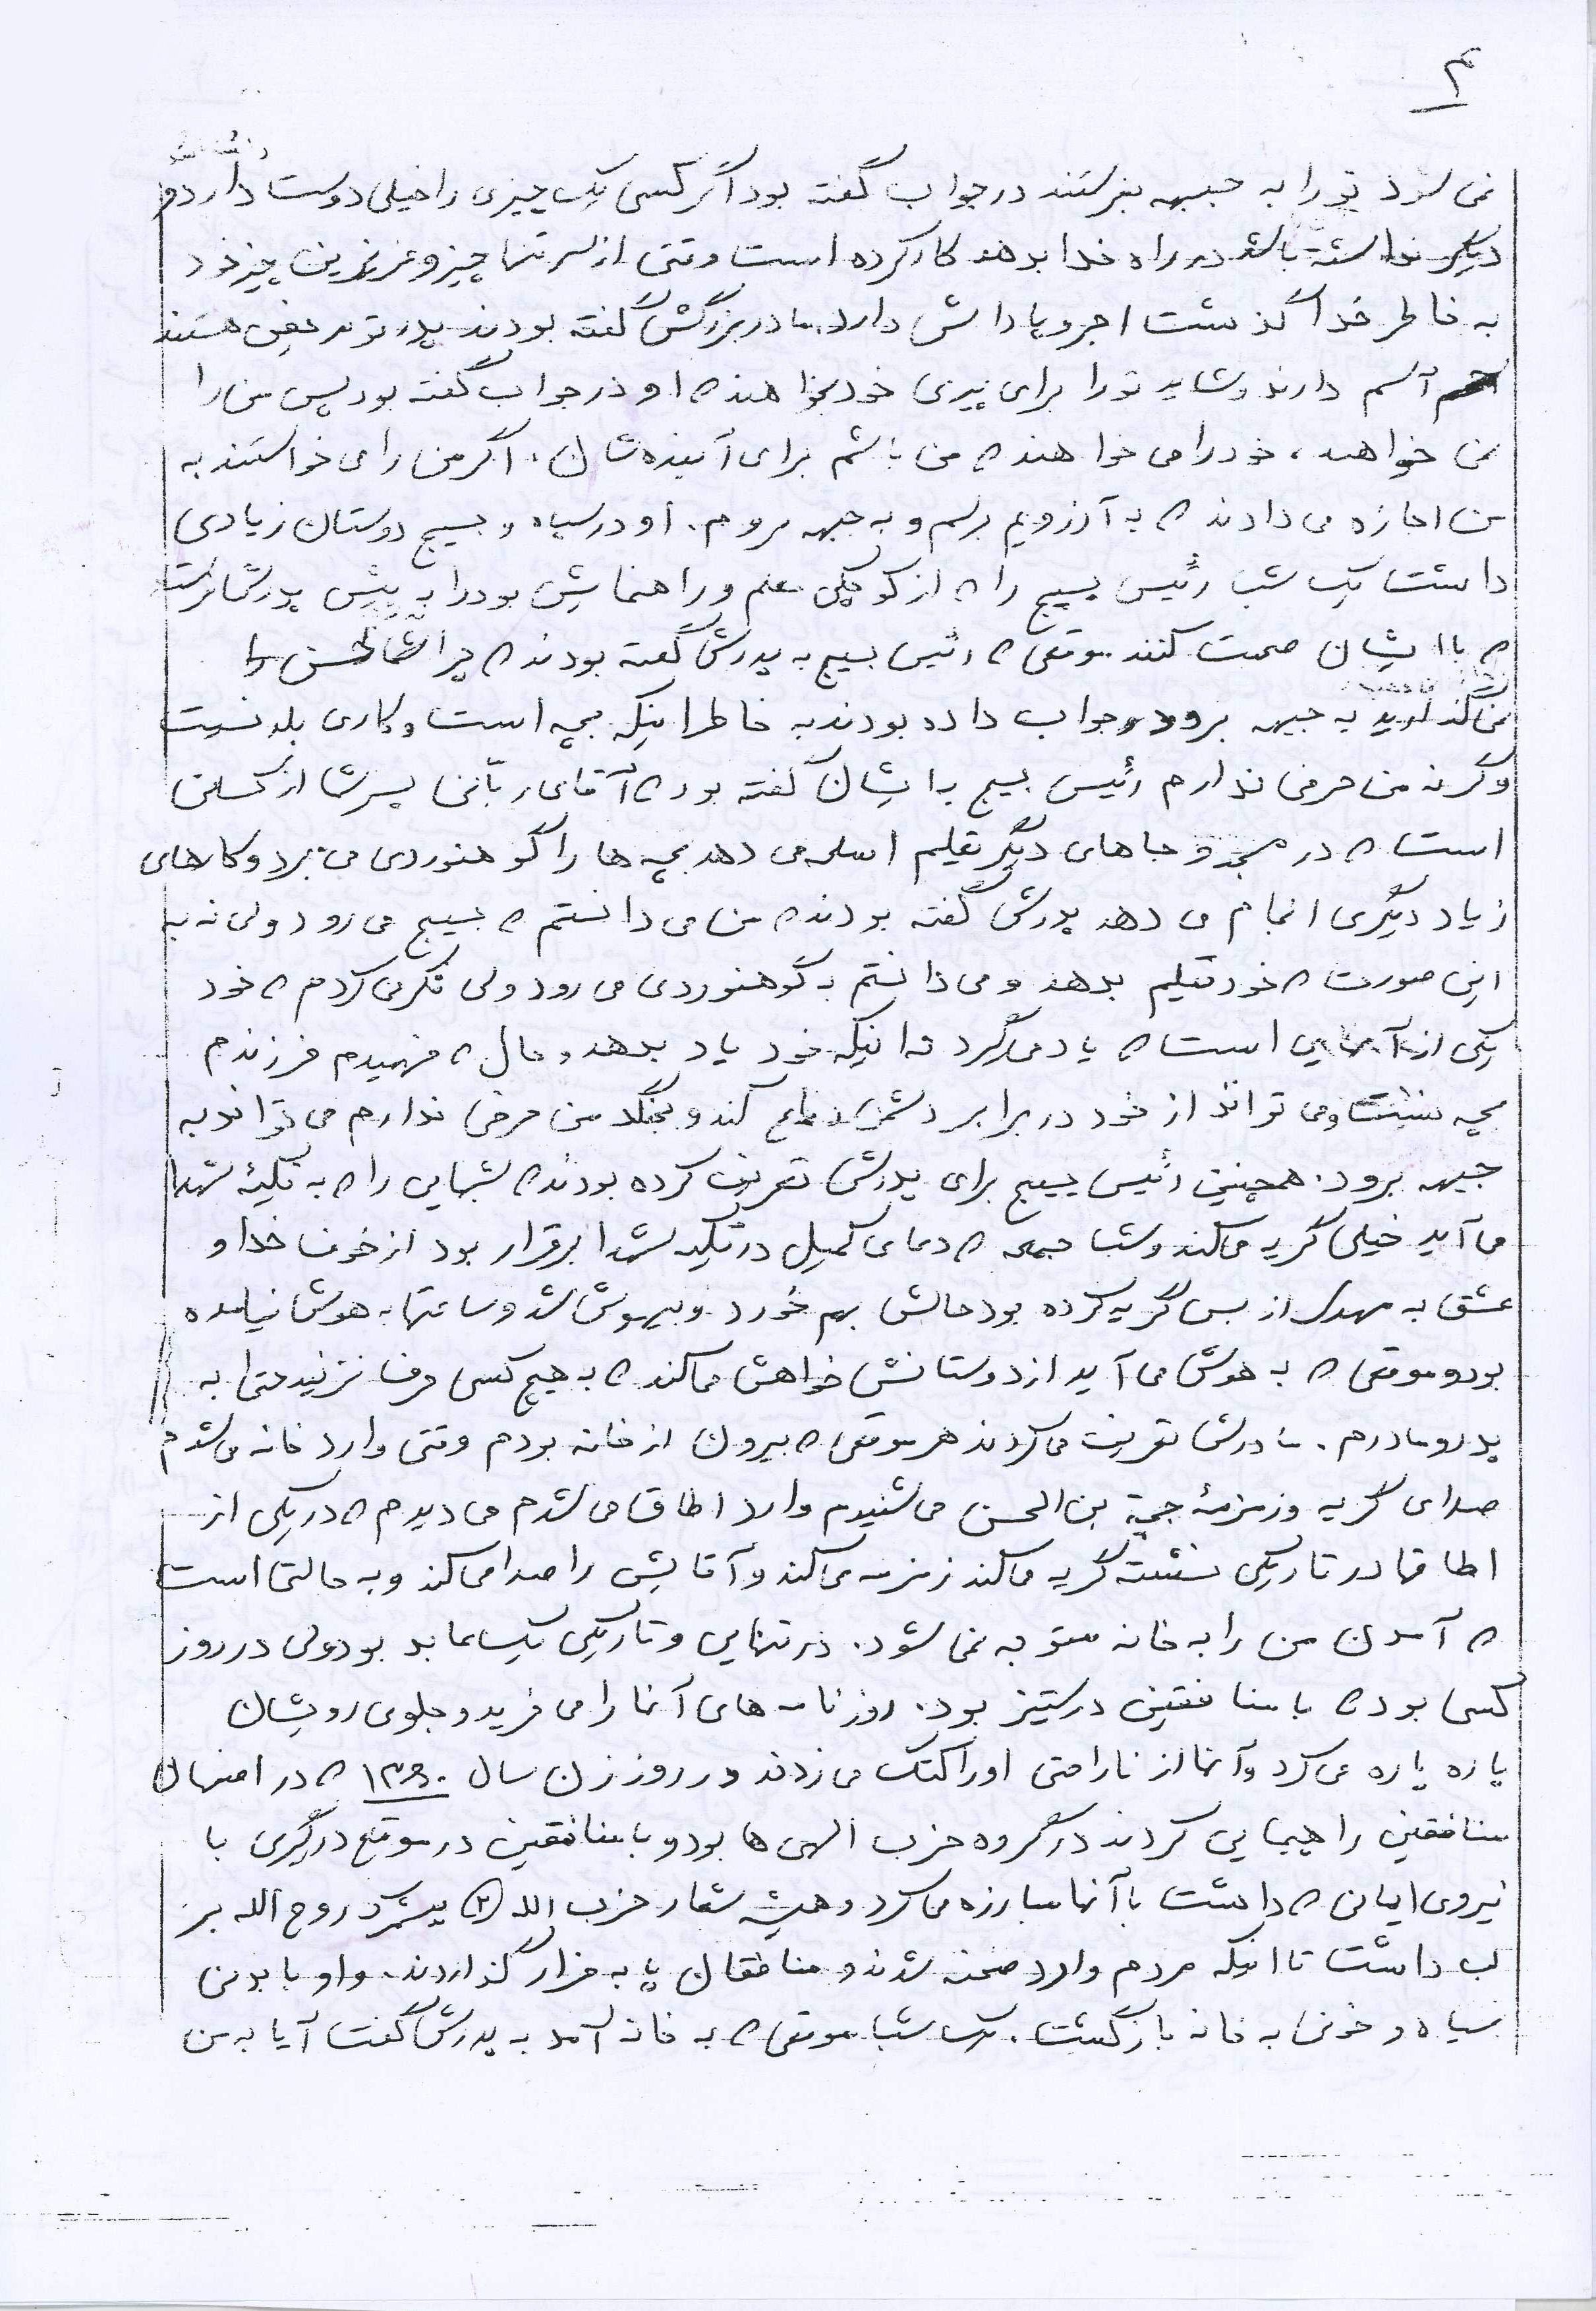 ۴
نمی شود تو را به جبهه بفرستند در جواب گفته بود اگر کسی یک چیزی را خیلی دوست دارد و
دیگر نداشته باشد در راه خدا بدهد کار کرده است وقتی از سر تنها چیز و عزیزترین چیز خود
به خاطر خدا گذشت اجر و پاداش دارد. مادر بزرگش گفته بودند پدر تو مریض هستند
آسم دارند و شاید تو را برای پیری خود بخواهند که او در جواب گفته بود پس من را
نمی خواهند، خود را می خواهند که من باشم برای آینده شان. اگر من را می خواستند به
من اجازه می دادند که به آرزویم برسم و به جبهه بروم. او در سپاه و بسیج دوستان زیادی
داشت یک شب رئیس بسیج را که از کوچکی معلم و راهنمایش بود را به پیش پدرش
که با ایشان صحبت کنند موقعی که رئیس بسیج به پدرش گفته بودند که چرا شما
نمی گذارید به جبهه برود، جواب داده بودند به خاطر اینکه بچه است و کاری بلد نیست
وگرنه من حرفی ندارم رئیس بسیج به ایشان گفته بود که آقای ربّانی پسر شما از کسانی
است که در مسجد و جاهای دیگر تعلیم اسلحه می دهد بچه ها را کوهنوردی می برد و کارهای
زیاد دیگری انجام می دهد پدرش گفته بودند که من می دانستم که بسیج می رود ولی نه به
این صورت که خود تعلیم بدهد و می دانستم به کوهنوردی می رود ولی فکر می کردم که خود
یکی از آنهایی است که یاد می گیرد نه اینکه خود یاد بدهد و حال که فهمیدم فرزندم
بچه نیست و می تواند از خود در برابر دشمن دفاع کند و بجنگد من حرفی ندارم می تواند به
جبهه برود. همچنین رئیس بسیج برای پدرش تعریف کرده بودند که شبهایی را که به تکیهٔ شهدا
می آید خیلی گریه می کند و شب جمعه که دعای کمیل در تکیه شهدا برقرار بود از خوف خدا و
عشق به مهدی از بس گریه کرده بود حالش بهم خورد و بیهوش شد و ساعتها به هوش نیامده
بود و موقعی که به هوش می آید از دوستانش خواهش می کند که به هیچ کسی حرف نزنید حتی به
پدر و مادرم. مادرش تعریف می کردند هر موقعی که بیرون از خانه بودم وقتی وارد خانه می شدم
صدای گریه و زمزمهٔ حجة بن الحسن می شنیدم وارد اطاق می شدم می دیدم که در یکی از
اطاقها در تاریکی نشسته گریه می کند زمزمه می کند و آقایش را صدا می کند و به حالتی است
که آمدن من را به خانه متوجه نمی شود. در تنهایی و تاریکی یک عابد بود ولی در روز
کسی بود که با منافقین در ستیز بود. روزنامه های آنها را می خرید و جلوی رویشان
پاره پاره می کرد و آنها از ناراحتی او را کتک می زدند در روز زن سال ۱۳۶۰ که در اصفهان
منافقین راهپیمایی کردند در گروه حزب الهی ها بود و با منافقین در موقع درگیری با
نیروی ایمانی که داشت با آنها مبارزه می کرد و همیشه شعار حزب الله (۲) پیشمرگ روح الله بر
لب داشت تا اینکه مردم وارد صحنه شدند و منافقان پا به فرار گذاردند. و او با بدنی
سیاه و خونی به خانه بازگشت. یک شب موقعی که به خانه آمد به پدرش گفت آیا به من